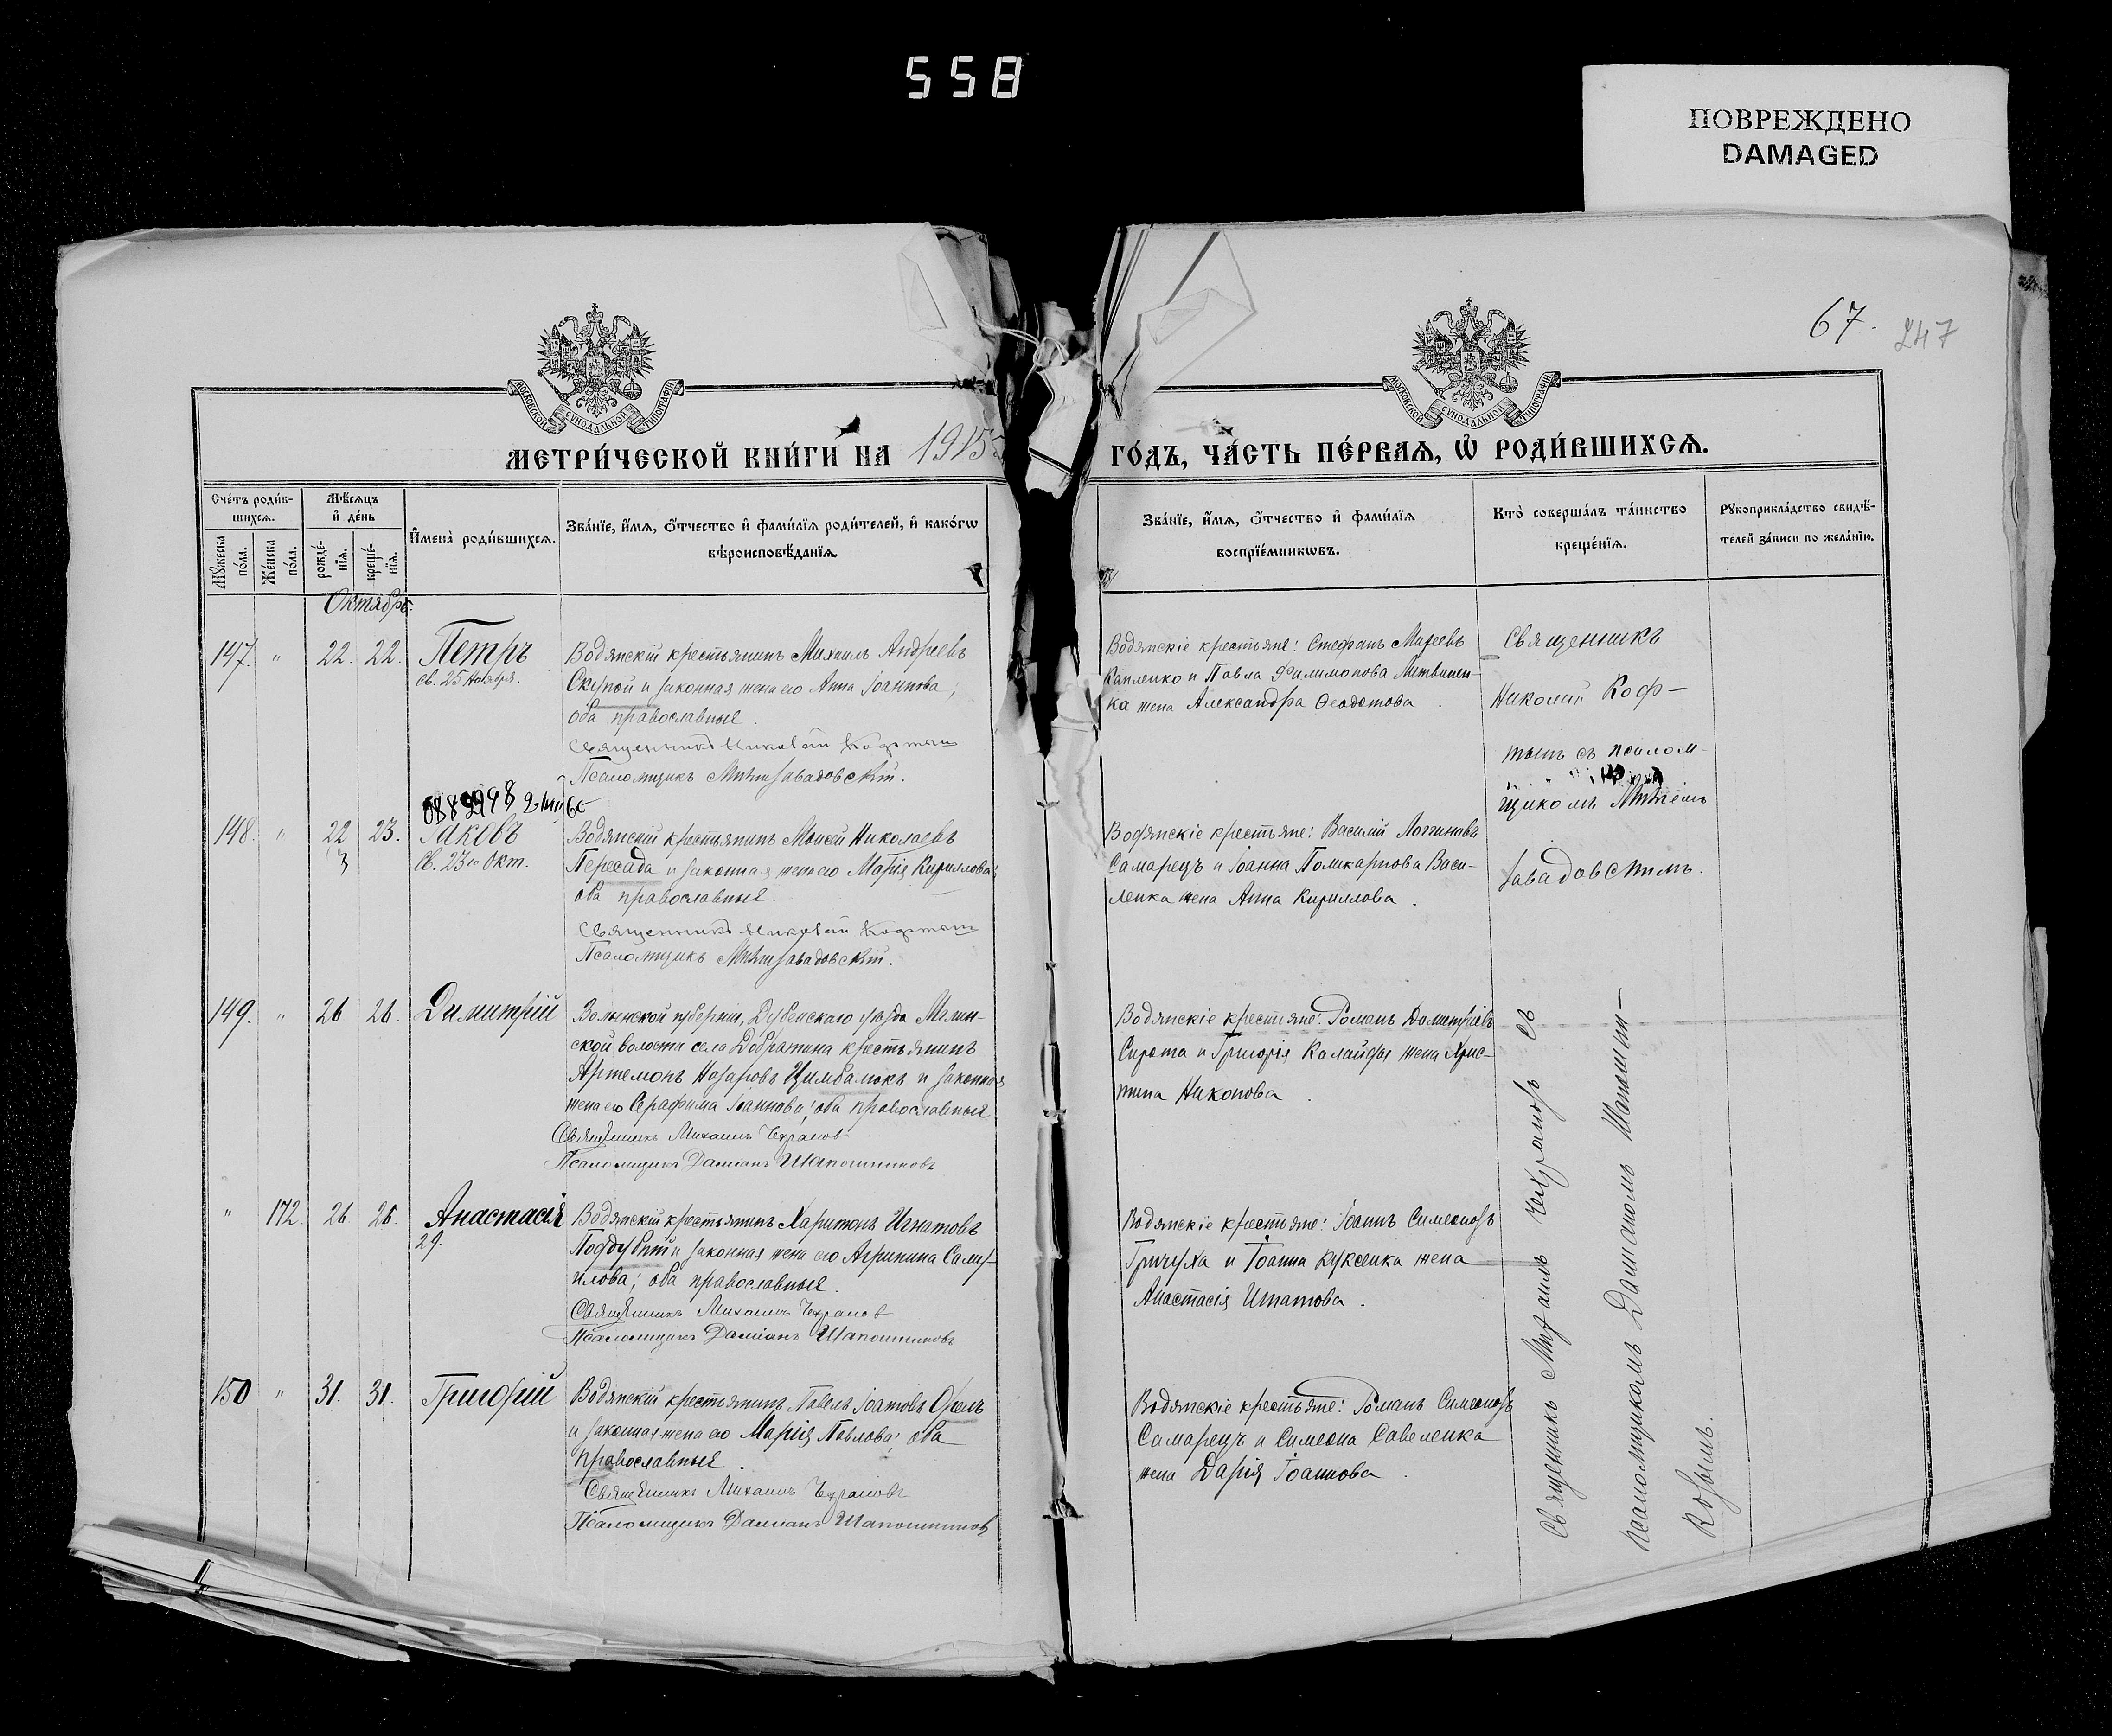 558
ПОВРЕЖДЕНО
DAMAGED
67.
247
МОСКОВСКОЙ СѴНОДАЛЬНОЙ ТИПОГРАФІИ
МОСКОВСКОЙ СѴНОДАЛЬНОЙ ТИПОГРАФІИ
МЕТРИ́ЧЕСКОЙ КНИ́ГИ НА 1915
ГО́ДЪ, ЧА́СТЬ ПЕ́РВАѦ, Ѡ҆ РОДИ́ВШИХСѦ.
Сче́тъ роди́в-
шихсѧ.
Мꙋ́жеска по́ла.
Же́нска по́ла.
Мѣ́сѧцъ
и҆ де́нь
рожде́-
нїѧ.
креще́-
нїѧ.
И҆мена̀ роди́вшихсѧ.
Зва́нїе, и҆́мѧ, ѻ҆́тчество и҆ фами́лїѧ роди́телей, и҆ како́гѡ
вѣроисповѣ́данїѧ.
Зва́нїе, и҆́мѧ, ѻ҆́тчество и҆ фами́лїѧ
воспрїе́мникѡвъ.
Кто̀ соверша́лъ та́инство
креще́нїѧ.
Рꙋкоприкла́дство свидѣ́-
телей за́писи по жела́нїю.
Октябрь.
147. " 22. 22. Петръ
св. 25 Ноября.
Водянскій крестьянинъ Михаилъ Андреевъ
Скупой и законная жена его Анна Іоаннова;
оба православные.
Священникъ Николай Кофтынъ
Псаломщикъ Завадовскій.
Водянскіе крестьяне: Стефанъ
и Павла Филимонова Литвинен-
ка жена Александра Феодотова.
Священникъ
Николай Коф-
тынъ съ псалом-
щикомъ
Завадовскимъ.
148. " 22 23. Іаковъ
3
св. 23го Окт.
Водянскій крестьянинъ Моисей Николаевъ
Пересада и законная жена его Марія Кириллова
оба православные.
Священникъ Николай Кофтынъ
Псаломщикъ Завадовскій.
Водянскіе крестьяне: Василій Логгиновъ
Самарецъ и Іоанна Поликарпова Васи-
ленка жена Анна Кириллова.
149. " 26 26. Димитрій
Волынской губерніи, Дубенскаго уѣзда Млин-
ской волости села Добратина крестьянинъ
Артемонъ Назаровъ Цимбалюкъ и законная
жена его Серафима Іоаннова; оба православные
Священникъ Михаилъ Чехрановъ
Псаломщикъ Даміанъ Шапошниковъ
Водянскіе крестьяне: Романъ Димитріевъ
Сирота и Григорія Калайды жена Хрис-
тина Никонова.
" 172. 26. 26. Анастасія
29.
Водянскій крестьянинъ Харитонъ Игнатовъ
Поддубный и законная жена его Агрипина Саму-
илова; оба православные.
Священникъ Михаилъ Чехрановъ
Псаломщикъ Даміанъ Шапошниковъ
Водянскіе крестьяне: Іоаннъ Симеоновъ
Гричуха и Іоанна Куксенка жена
Анастасія Игнатова.
150 " 31. 31. Григорій
Водянскій крестьянинъ Павелъ Орелъ
и законная жена его Марія Павлова; оба
православные.
Священникъ Михаилъ Чехрановъ
Псаломщикъ Даміанъ Шапошниковъ
Водянскіе крестьяне: Романъ Симеоновъ
Самарецъ и Симеона Савеленка
жена Дарія Іоаннова.
Священникъ Михаилъ Чехрановъ съ
псаломщикомъ Даміаномъ Шапошни-
ковымъ.